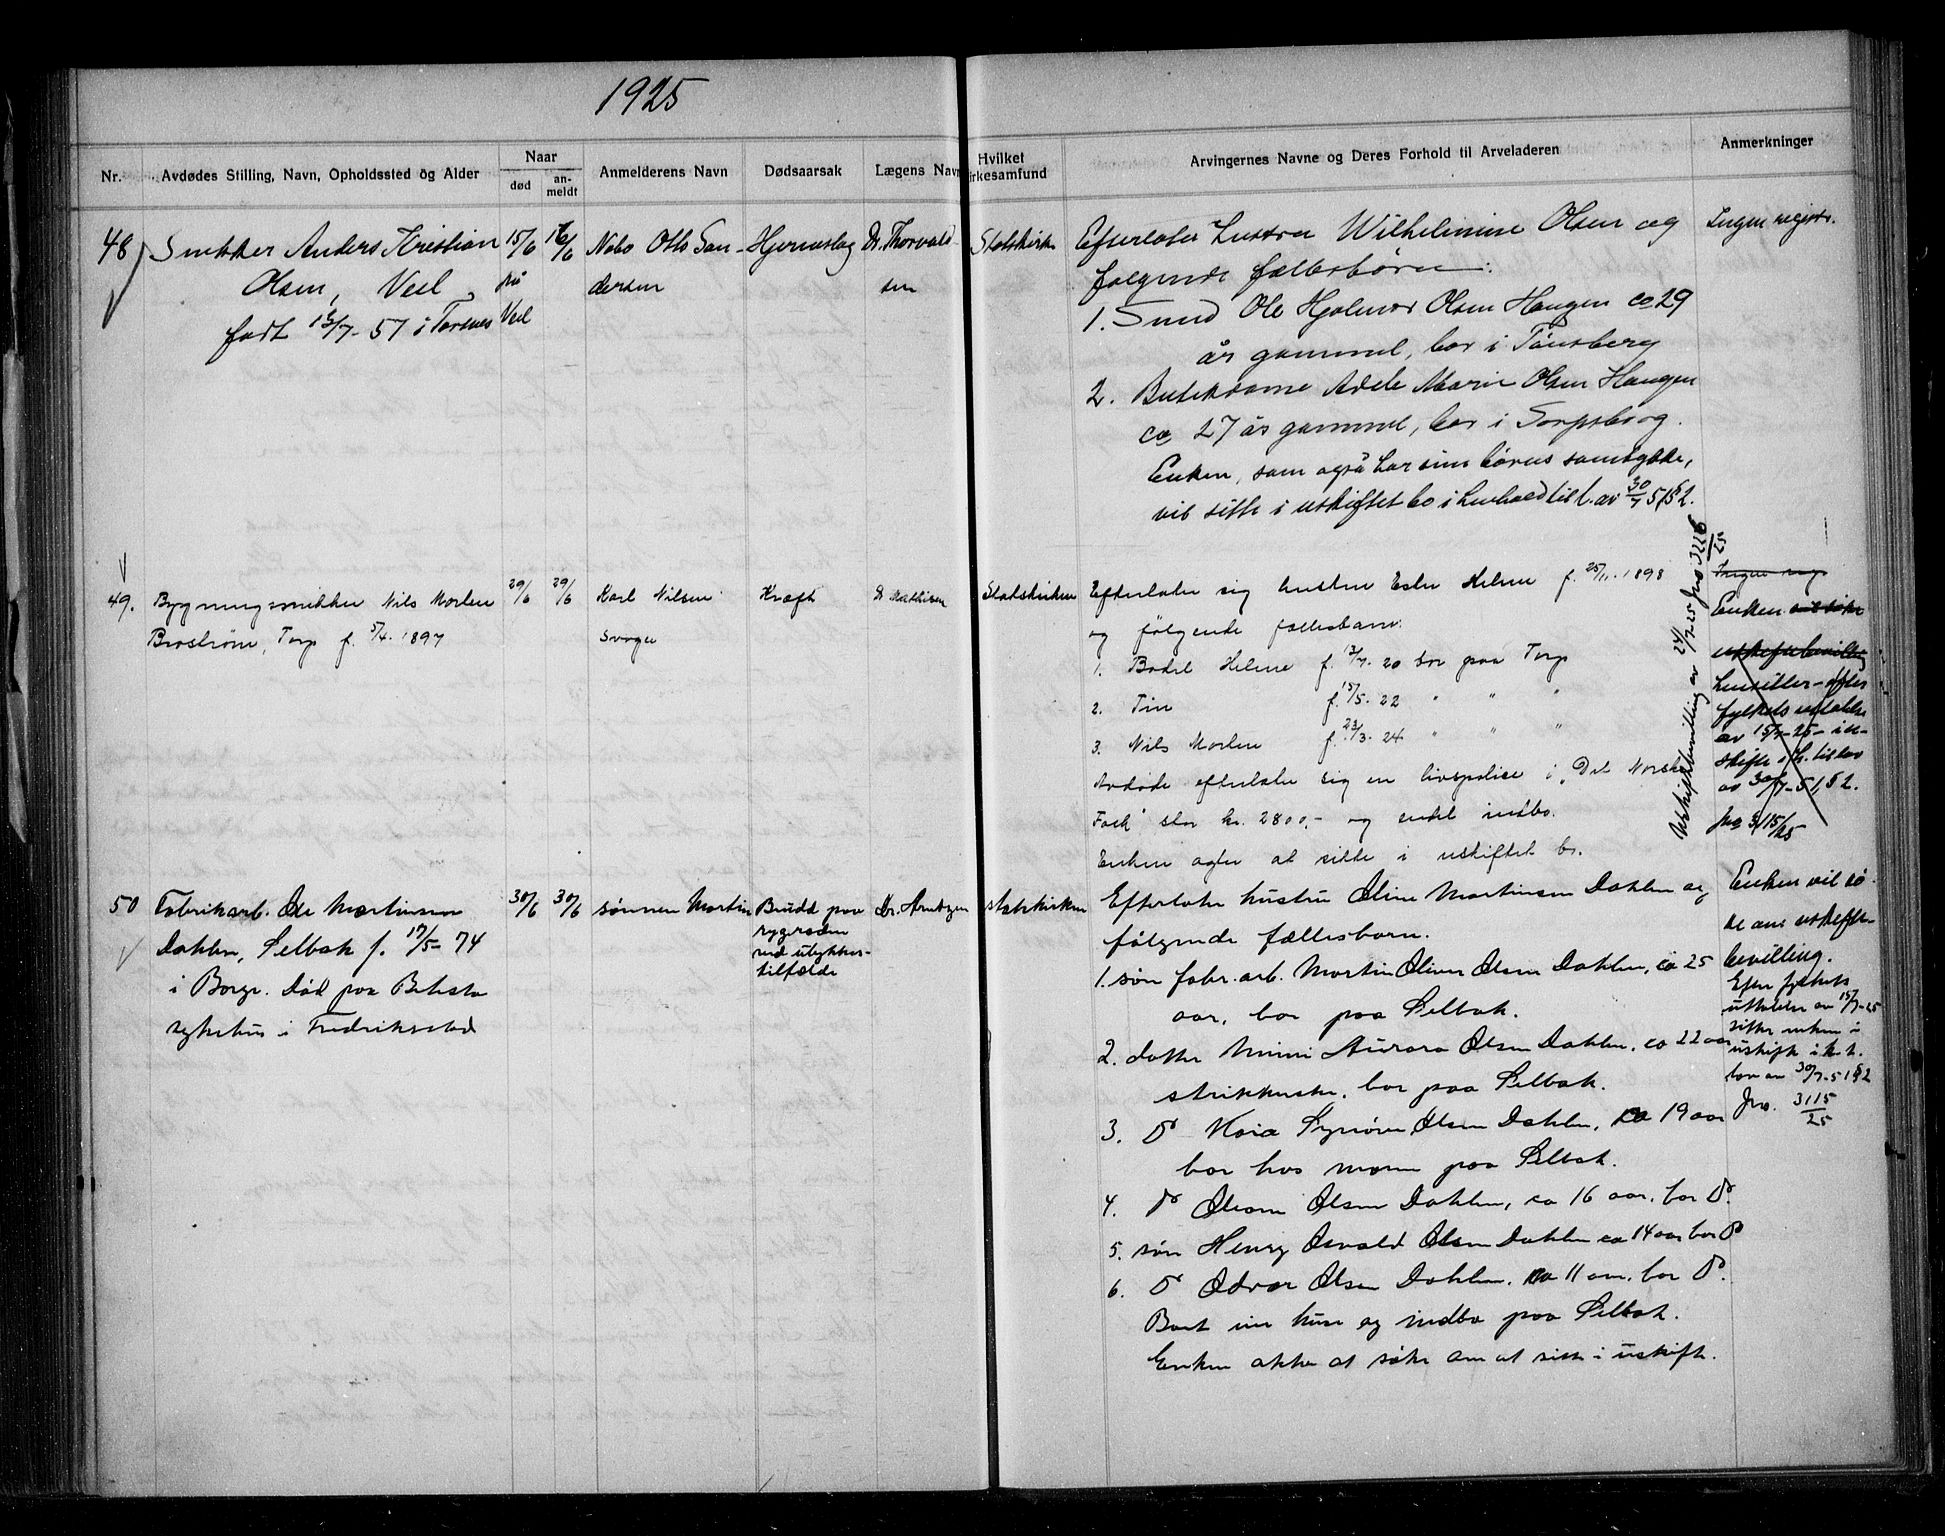 1925
Nr.
Avdødes Stilling, Navn, Opholdssted og Alder
Naar
død
an-
meldt
Anmelderens Navn
Dødsaarsak
Lægens Navn
Hvilket
irkesamfund
Arvingernes Navne og Deres Forhold til Arveladeren
Anmerkninger
48
Snekker Anders Kristian
Olsen, Veel
født 12/7-57 i Torsnes
15/6
på
Veel
16/6
Nabo Otto San-
dersen
Hjerneslag
Dr. Thorvald-
sen
Statskirke
Efterlater hustru Wilhelmine Olsen og
følgende fællesbørn:
1. Smed Ole Hjalmar Olsen Haugen ca 29
år gammel, bor i Tønsberg
2. Butikdame Adele Marie Olsen Haugen
ca 27 år gammel, bor i Sarpsborg.
Enken, som også har sine børns samtykke,
vil sitte i uskiftet bo i henhold til l. av 30/7 51 § 2.
Ingen registr.
49.
Bygningssnikker Nils Marten
Brostrøm, Torp f. 5/4. 1897
29/6
29/6
Karl Nilsen
Svoger
Kræft
Dr Mathisen
Statskirken
Efterlater sig hustru Ester Helene f. 25/11. 1898
og følgende fællesbarn:
1. Bodil Helene f. 13/7. 20 bor paa Torp
2. Finn f. 15/5. 22 " " "
3. Nils Marten f. 23/3. 24 " " "
Avdøde efterlater sig en livspolise i "Det Norske
Folk" stor kr. 2800,- og endel indbo.
Enken agter at sitte i uskiftet bo.
Uskiftebevilling av 24/7-25 Jno 3226/25
Ingen reg.
Enken vil søke
uskiftebevilling
Hensitter- efter
fylkets uttalelse
av 15/7-25- i u-
skifte i h. til lov
av 30/7-51, § 2.
Jno 3115/25
50
Fabrikarb. Ole Martinsen
Dahlen, Selbak f. 17/5- 74
i Borge. Død paa Betesta
sykehus i Fredrikstad
30/6
30/6
sønnen Martin
Brudd paa
rygraden
ved ulykkes-
tilfælde
Dr. Arntzen
statskirken
Efterlater hustru Oline Martinsen Dahlen og
følgende fællesbarn.
1. søn fabr. arb. Martin Oliver Olsen Dahlen, ca 25
aar, bor paa Selbak.
2. datter Minni Aurora Olsen Dahlen, ca 22 aar
strikkerske, bor paa Selbak.
3. Do Olsen Dahlen, ca 19 aar
bor hos moren paa Selbak.
4. Do Olsen Dahlen, ca 16 aar, bor Do.
5. søn Henry Osvald Olsen Dahlen ca 14 aar bor Do
6. Do Odvar Olsen Dahlen, ca 11 aar, bor Do.
Boet eier huse og indbo paa Selbak.
Enken akter at søke om at sitte i uskifte.
Enken vil sø-
ke om uskifte-
bevilling.
Efter fylkets
uttalelse av 15/7-25
sitter enken i
uskifte i h. t.
lov av 30/7-51 § 2
Jno. 3115/25